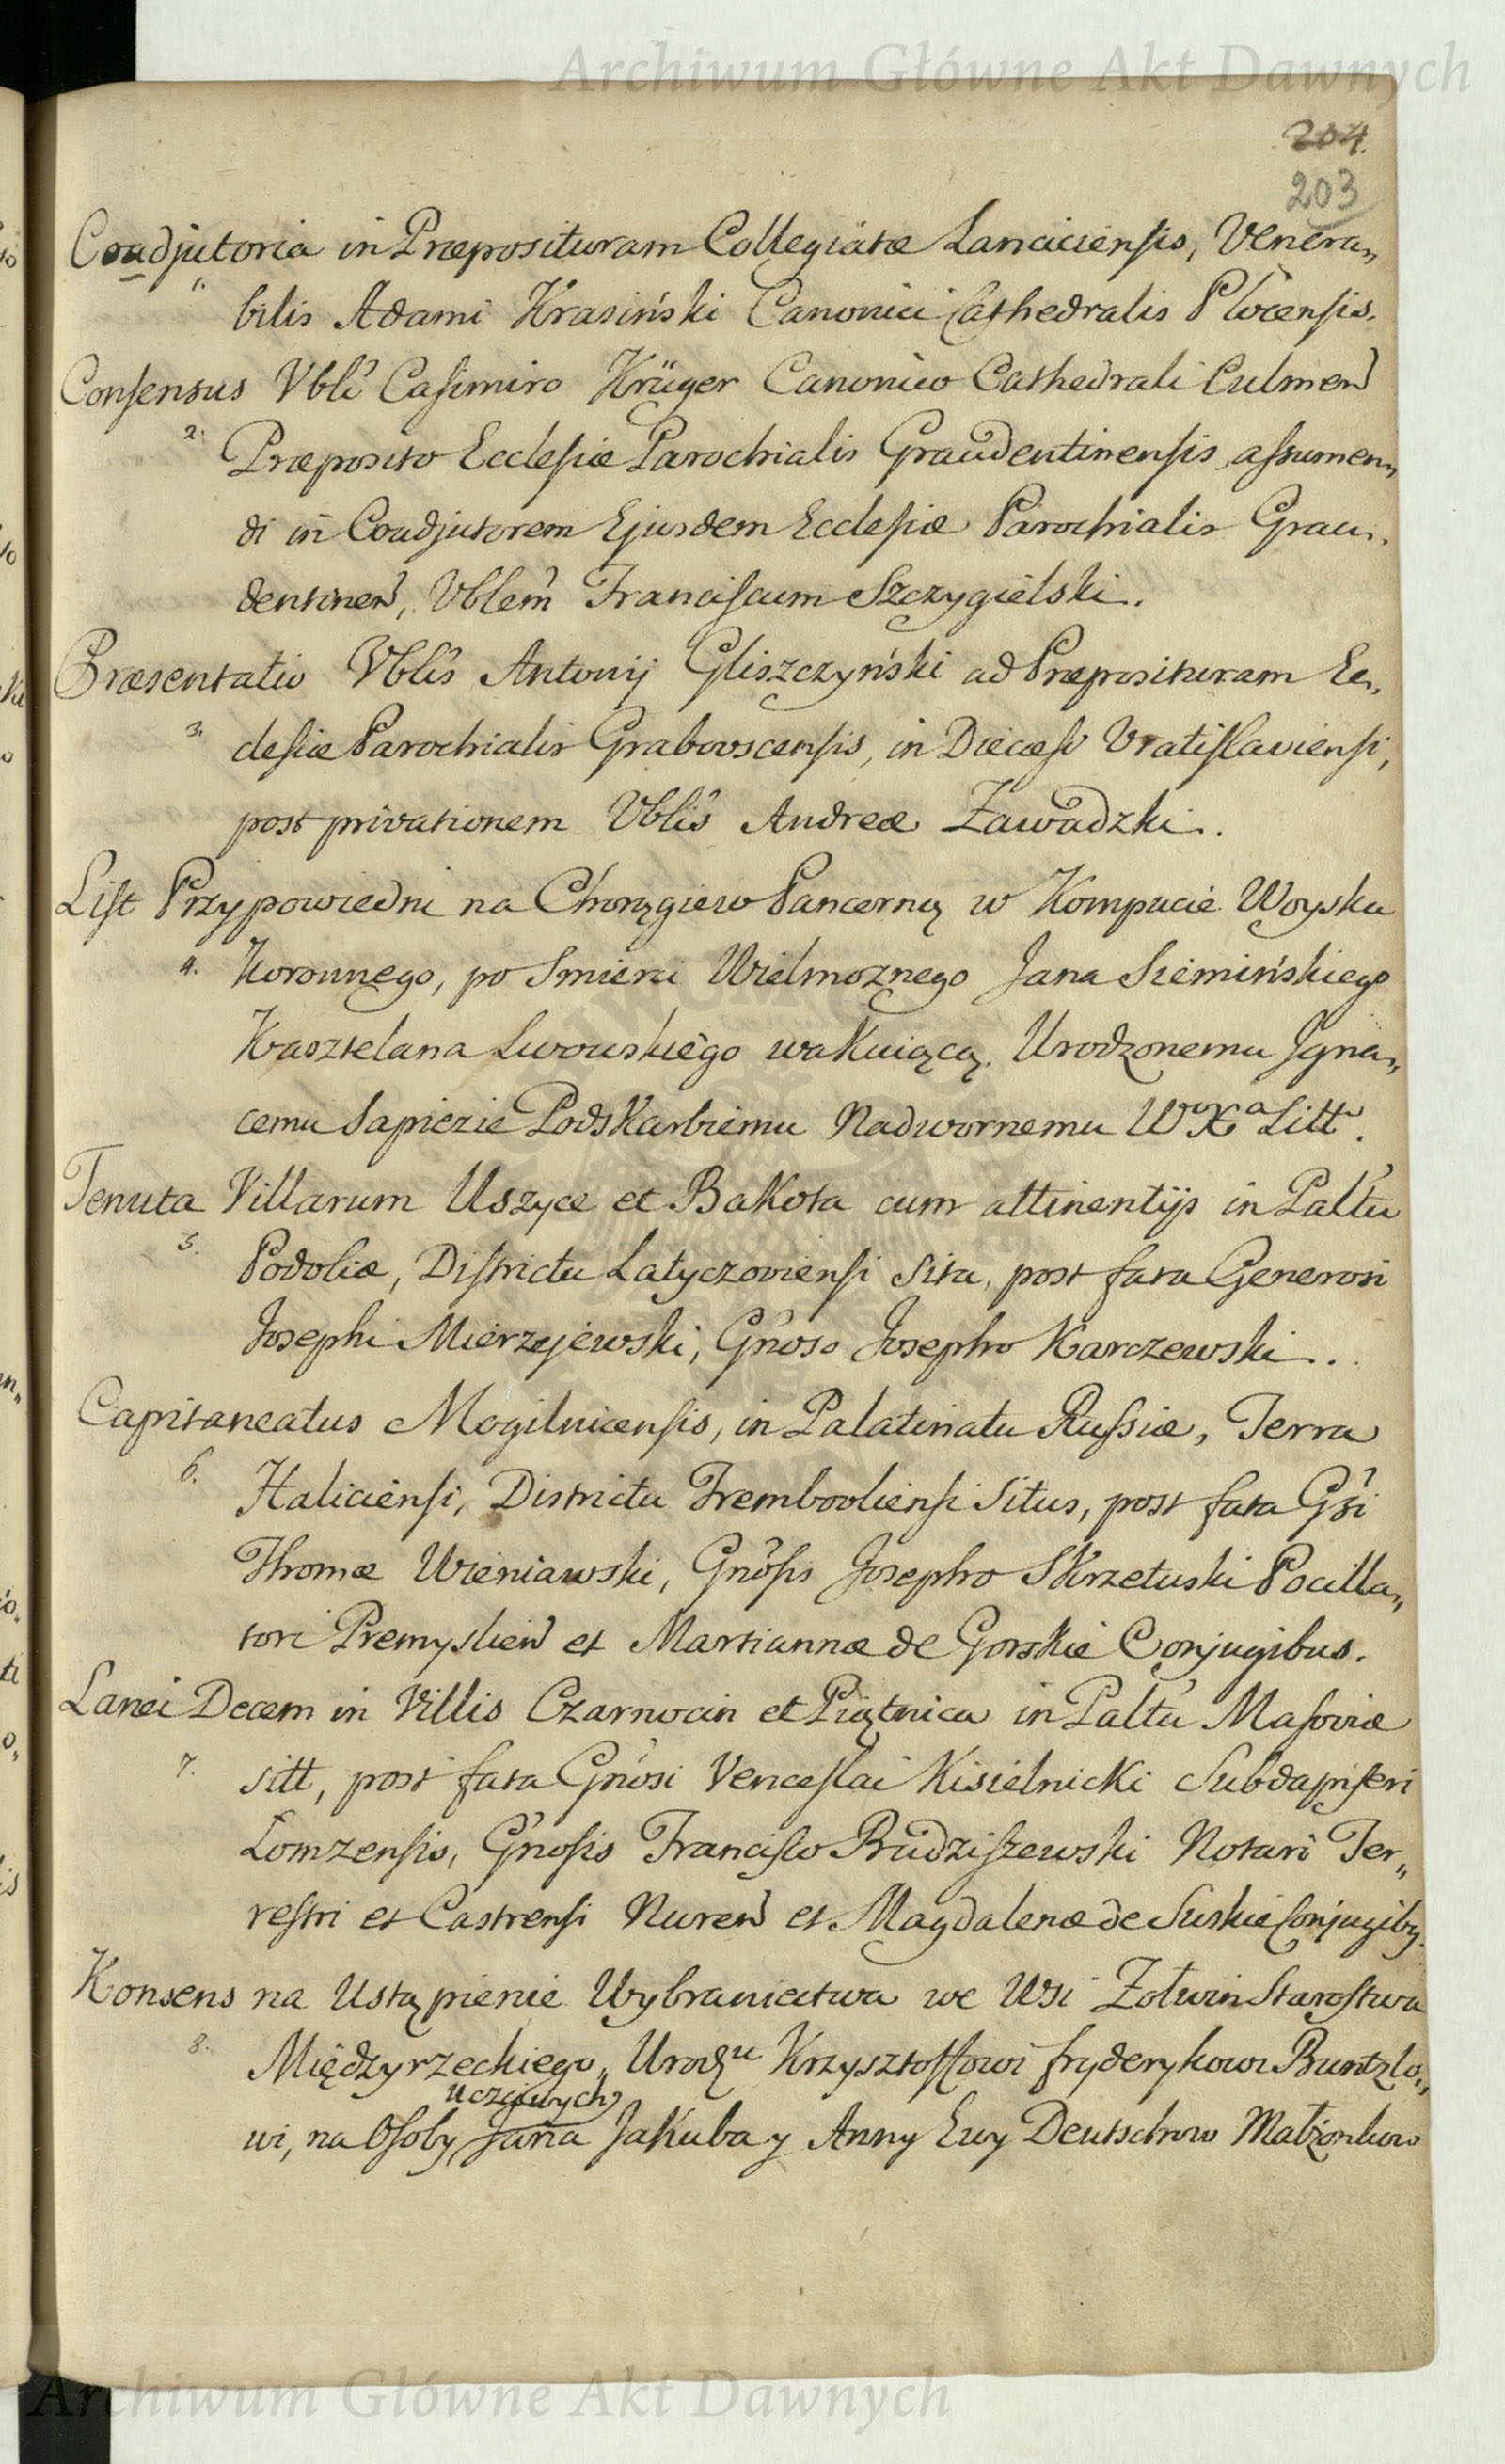 Archiwum Główne Akt Dawnych
204.
203
Coadjutoria in Præposituram Collegiatæ Lanciciensis, Venera„
1. bilis Adami Krasiński Canonici Cathedralis Plocensis.
Consensus Vbli Casimiro Krüger Canonico Cathedrali Culmen
2. Præposito Ecclesiæ Parochialis Graudentinensis, assumen„
di in Coadjutorem Ejusdem Ecclesiæ Parochialis Grau„
dentinen, Vblem Franciscum Szczygielski.
Præsentatio Vblis Antonij Gliszczyński ad Præposituram Ec„
3. clesiæ Parochialis Grabovscensis, in Diæcesi Vratislaviensi,
post privationem Vblis Andreæ Zawadzki.
List Przypowiedni na Chorągiew Pancerną w Kompucie Woyska
4. Koronnego, po Smierci Wielmoznego Jana Siemińskiego
Kasztelana Lwowskiego wakuiącą. Urodzonemu Igna„
cemu Sapiezie Podskarbiemu Nadwornemu W X Litt.
Tenuta Villarum Uszyce et Bakota cum attinentijs in Paltu
5. Podoliæ, Districtu Latyczoviensi Sita, post fata Generosi
Josephi Mierzejewski, Gnoso Josepho Karczewski.
Capitaneatus Mogilnicensis, in Palatinatu Russiæ, Terra
6. Haliciensi, Districtu Trembovliensi Situs, post fata Gsi
Thomæ Wieniawski, Gnosis Josepho Skrzetuski Pocilla„
tori Premyslien et Martiannæ de Gorskie Conjugibus.
Lanei Decem in Villis Czarnocin et Piątnica in Paltu Masoviæ
7. sitt, post fata Gnosi Venceslai Kisielnicki Subdapiferi
Lomzensis, Gnosis Francisco Rudziszewski Notari Ter„
restri et Castrensi Nuren et Magdalenæ de Suskie Conjugiby.
Konsens na Ustąpienie Wybraniectwa we Wsi Zołwin Starostwa
8. Międzyrzeckiego, Urodzu Krzysztoffowi fryderykowi Buntzlo„
uczciwych
wi, na Osoby Jana Jakuba y Anny Ewy Deutschow Małżonkow
Archiwum Główne Akt Dawnych